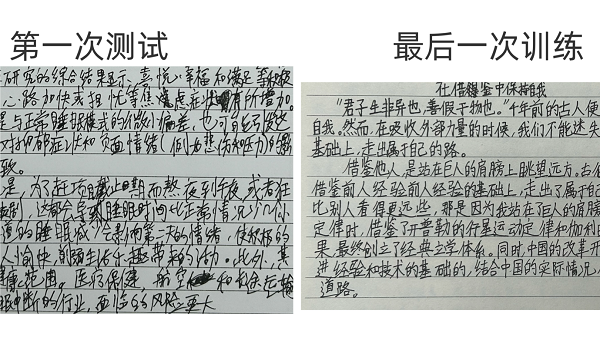 第一次测试
最后一次训练
研究的综合结果显示、喜悦、幸福和满足等积极
心路加快或担忧等焦虑症状有所增加
是与正常睡眠模式的微小偏差,也可能导致
对抑郁症状和负面情绪(例如悲伤和压力)的影
致。
是,为了在项目截止日期前熬夜到午夜,或者在
剧,这都会导致睡眠时间比正常情况少几个小
道的睡眠减少会影响第二天的情绪,使积极的
人愉快 生活乐趣带来的活力。此外,其
范围。医疗保健,航空 和长途运输
眠中断的行业,面临的风险更大
在借鉴中保持自我
“君子生非异也,善假于物也。”千年前的古人便
自我。然而,在吸收外部力量的时候,我们不能迷失
基础上,走出属于己的路。
借鉴他人,是站在巨人的肩膀上眺望远方。古
借鉴前人经验前人经验的基础上,走出了属于
比别人看得更远些,那是因为我站在了巨人的肩膀
定律时,借鉴了开普勒的行星运动定律和伽利
果,最终创立了经典立学体系。同时,中国的改革开
进经验和技术的基础的,结合中国的实际情况,
道路。